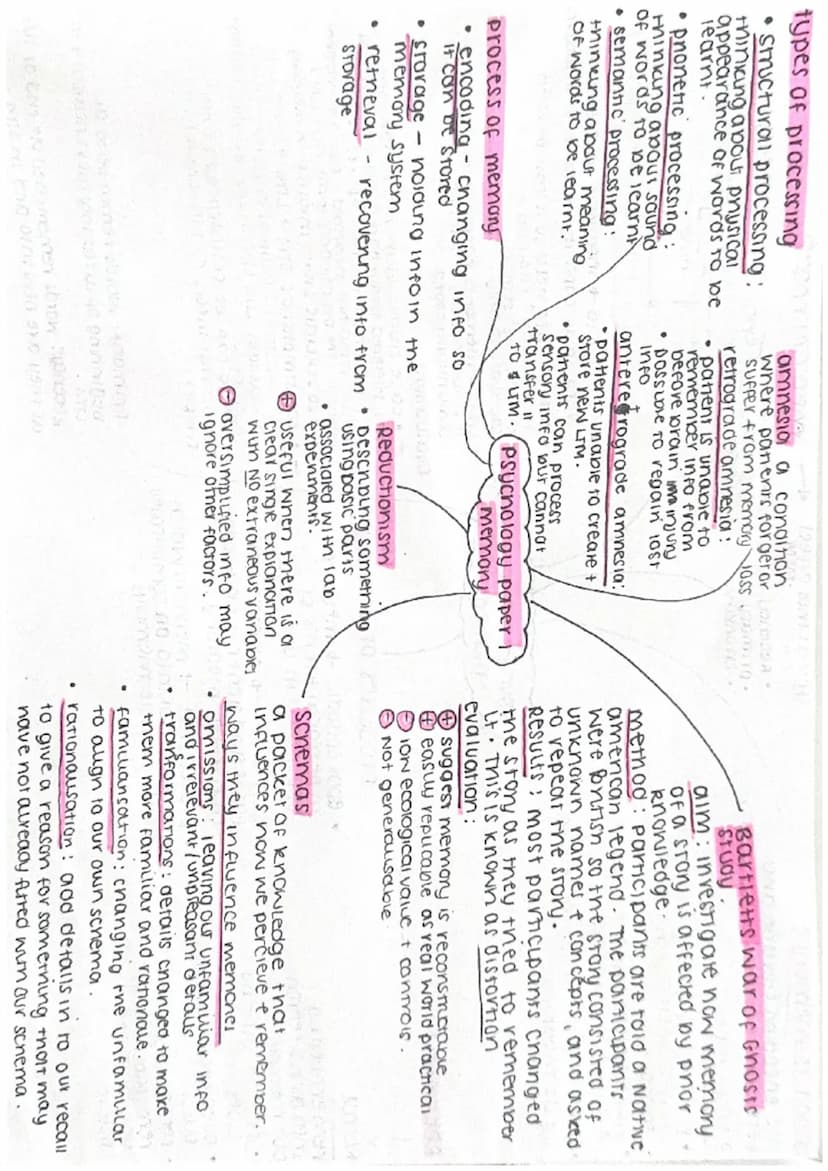 types of processing
• structural processing :
thinking about physical
appearance of words to be
learnt.
• phonetic processing :
thinking about sound
of words to be learnt
• semantic processing :
thinking about meaning
of words to be learnt.
process of memory
• encoding - changing info so
it can be stored
• storage - holding info in the
memory system
• retrieval - recovering info from
storage
amnesia a condition
where patients forget or
suffer from memory loss
retrograde amnesia :
• patient is unable to
remember info from
before brain injury
• possible to regain lost
info
anterograde amnesia:
• patients unable to create +
store new LTM.
• patients can process
sensory info but cannot
transfer it
to LTM.
psychology paper 1
memory
Reductionism
• Describing something
using basic parts
• associated with lab
experiments.
+ useful when there is a
clear single explanation
with NO extraneous variables
- oversimplified info may
ignore other factors.
Bartletts war of Ghosts
study.
aim : investigate how memory
of a story is affected by prior
knowledge.
method : participants are told a Native
american legend. The participants
were British so the story consisted of
unknown names + concepts, and asked
to repeat the story.
Results : most participants changed
the story as they tried to remember
it. This is known as distortion
evaluation :
+ suggest memory is reconstructable
+ easily replicable as real world practical
- low ecological value + controls.
- Not generalisable.
schemas
a packet of knowledge that
influences how we percieve + remember.
ways they influence memories
• omissions : leaving our unfamiliar info
and irrelevant/unpleasant details
• transformations : details changed to make
them more familiar and rationale.
• familiarisation : changing the unfamiliar
to align to our own schema.
• rationalisation : add details in to our recall
to give a reason for something that may
have not already fitted with our schema.